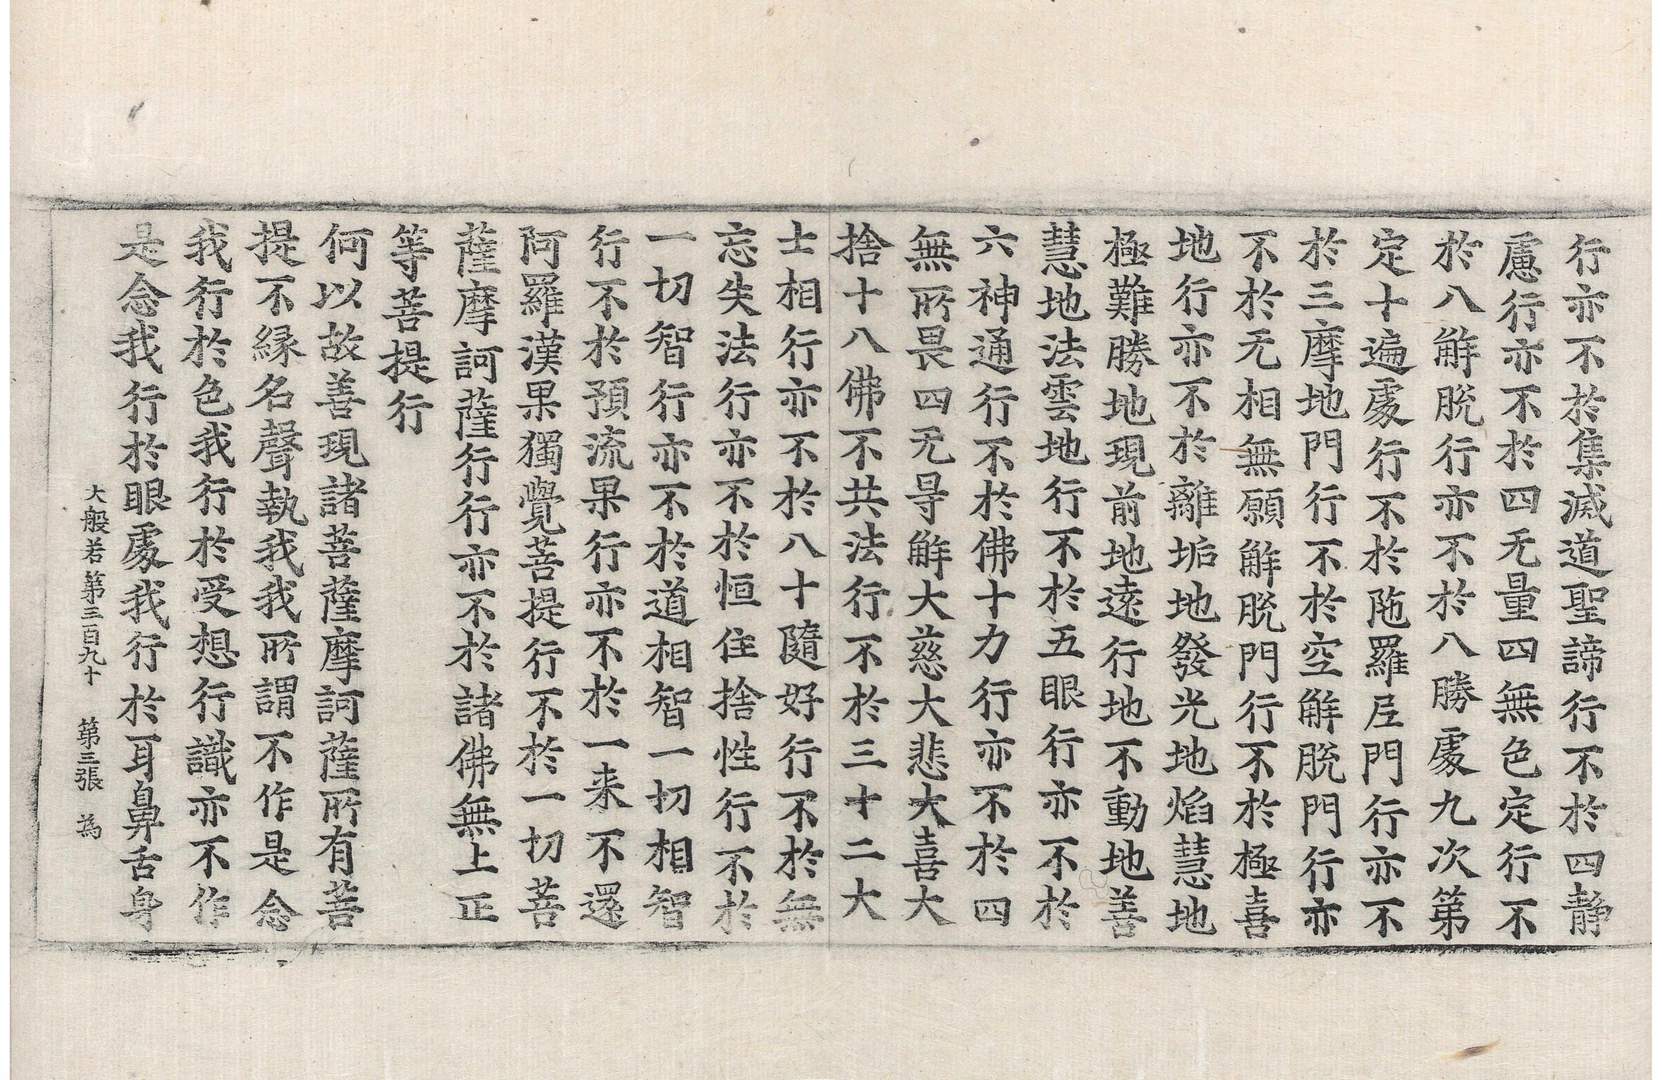 行亦不於集滅道聖諦行不於四静
慮行亦不於四无量四無色定行不
於八解脫行亦不於八勝處九次第
定十遍處行不於陁羅尼門行亦不
於三摩地門行不於空解脫門行亦
不於无相無願解脫門行不於極喜
地行亦不於離垢地發光地焰慧地
極難勝地現前地遠行地不動地善
慧地法雲地行不於五眼行亦不於
六神通行不於佛十力行亦不於四
無所畏四无㝵解大慈大悲大喜大
捨十八佛不共法行不於三十二大
士相行亦不於八十隨好行不於無
忘失法行亦不於恒住捨性行不於
一切智行亦不於道相智一切相智
行不於預流果行亦不於一来不還
阿羅漢果獨覺菩提行不於一切菩
薩摩訶薩行行亦不於諸佛無上正
等菩提行
何以故善現諸菩薩摩訶薩所有菩
提不緣名聲執我我所謂不作是念
我行於色我行於受想行識亦不作
是念我行於眼處我行於耳鼻舌身
大般若第三百九十 第三張 為